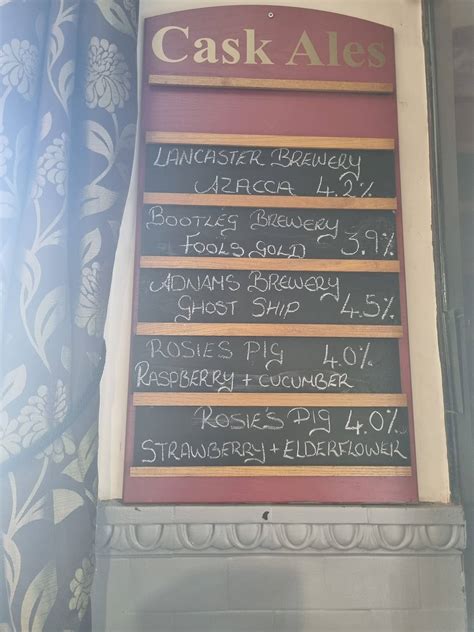 Cask Ales
LANCASTER BREWERY
AZACCA 4.2%
BOOTLEG BREWERY
FOOLS GOLD 3.9%
ADNAMS BREWERY
GHOST SHIP 4.5%
ROSIES PIG 4.0%
RASPBERRY + CUCUMBER
ROSIE'S PIG 4.0%
STRAWBERRY + ELDERFLOWER